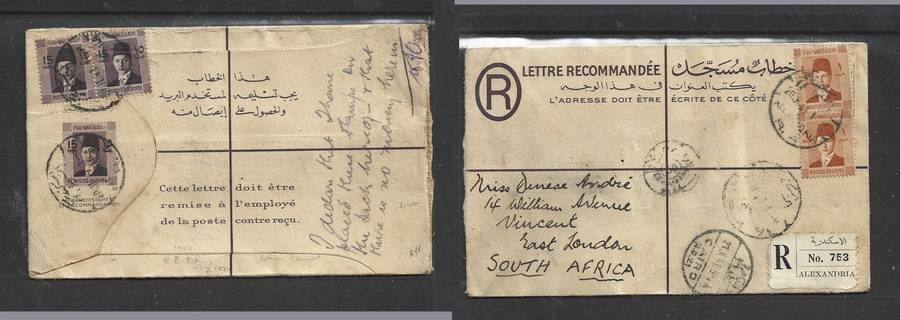 15 15
هذا الخطاب
يجب تسليمه لمستخدم البريد
والحصول على إيصال منه
15
POSTES D'EGYPTE
Cette lettre doit être
remise à l'employé
de la poste contre reçu.
I declare that I have
placed these stamps on
the back hereof & that
there is no money herein
R
LETTRE RECOMMANDÉE خطاب مسجل
في هذا الوجه يكتب العنوان
L'ADRESSE DOIT ÊTRE ÉCRITE DE CE CÔTÉ
Miss Denese André
14 William Avenue
Vincent
East London
SOUTH AFRICA
CAIRO
R
الاسكندرية
No. 753
ALEXANDRIA